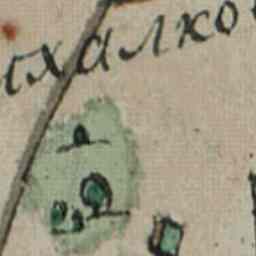 ихалко